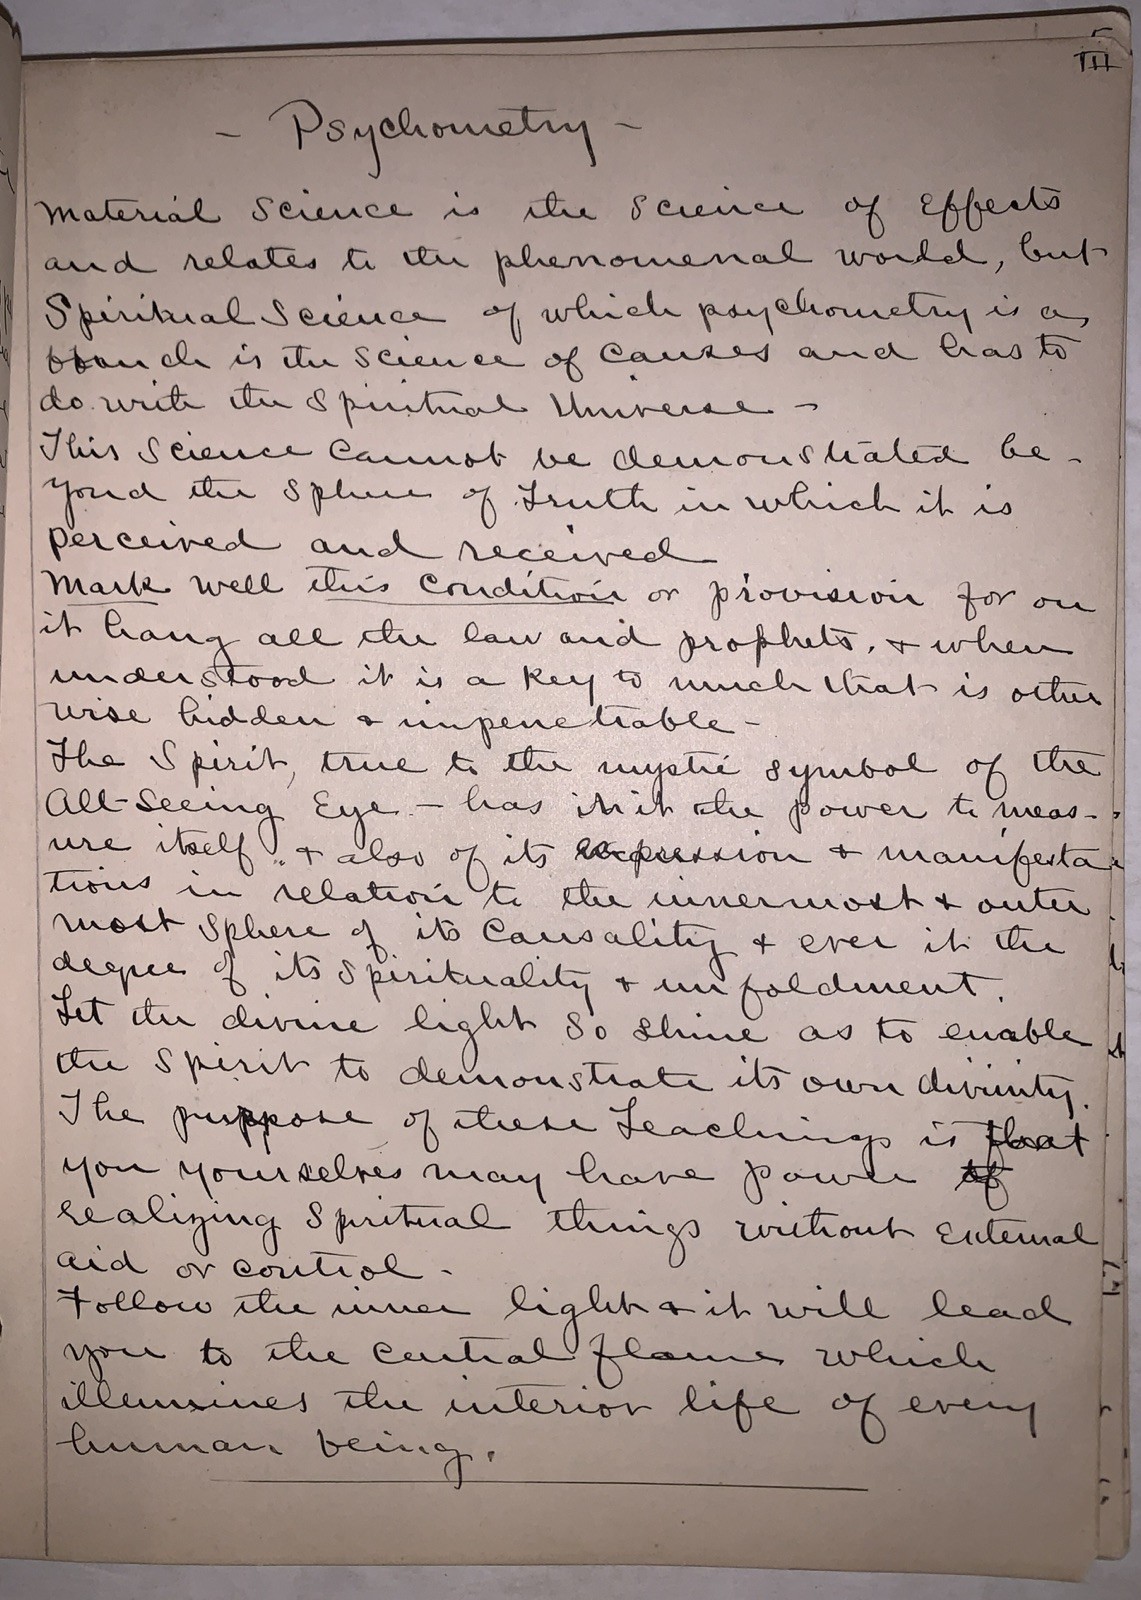 5
III
- Psychometry -
Material Science is the Science of Effects
and relates to the phenomenal world, but
Spiritual Science of which psychometry is a
branch is the Science of Causes and has to
do with the Spiritual Universe -
This Science Cannot be demonstrated be-
yond the Sphere of Truth in which it is
perceived and received
Mark well this Condition or provision for on
it hang all the law and prophets, & when
understood it is a key to much that is other
wise hidden & impenetrable -
The Spirit, true to the mystic symbol of the
All-Seeing Eye - has in it the power to meas-
ure itself & also of its expression & manifesta
tions in relation to the innermost & outer
most Sphere of its Causality & ever it the
degree of its Spirituality & unfoldment.
Let the divine light So shine as to enable
the Spirit to demonstrate its own divinity.
The purpose of these Teachings is that
you yourselves may have power of
realizing Spiritual things without External
aid or control -
Follow the inner light & it will lead
you to the Central flame which
illumines the interior life of every
human being.